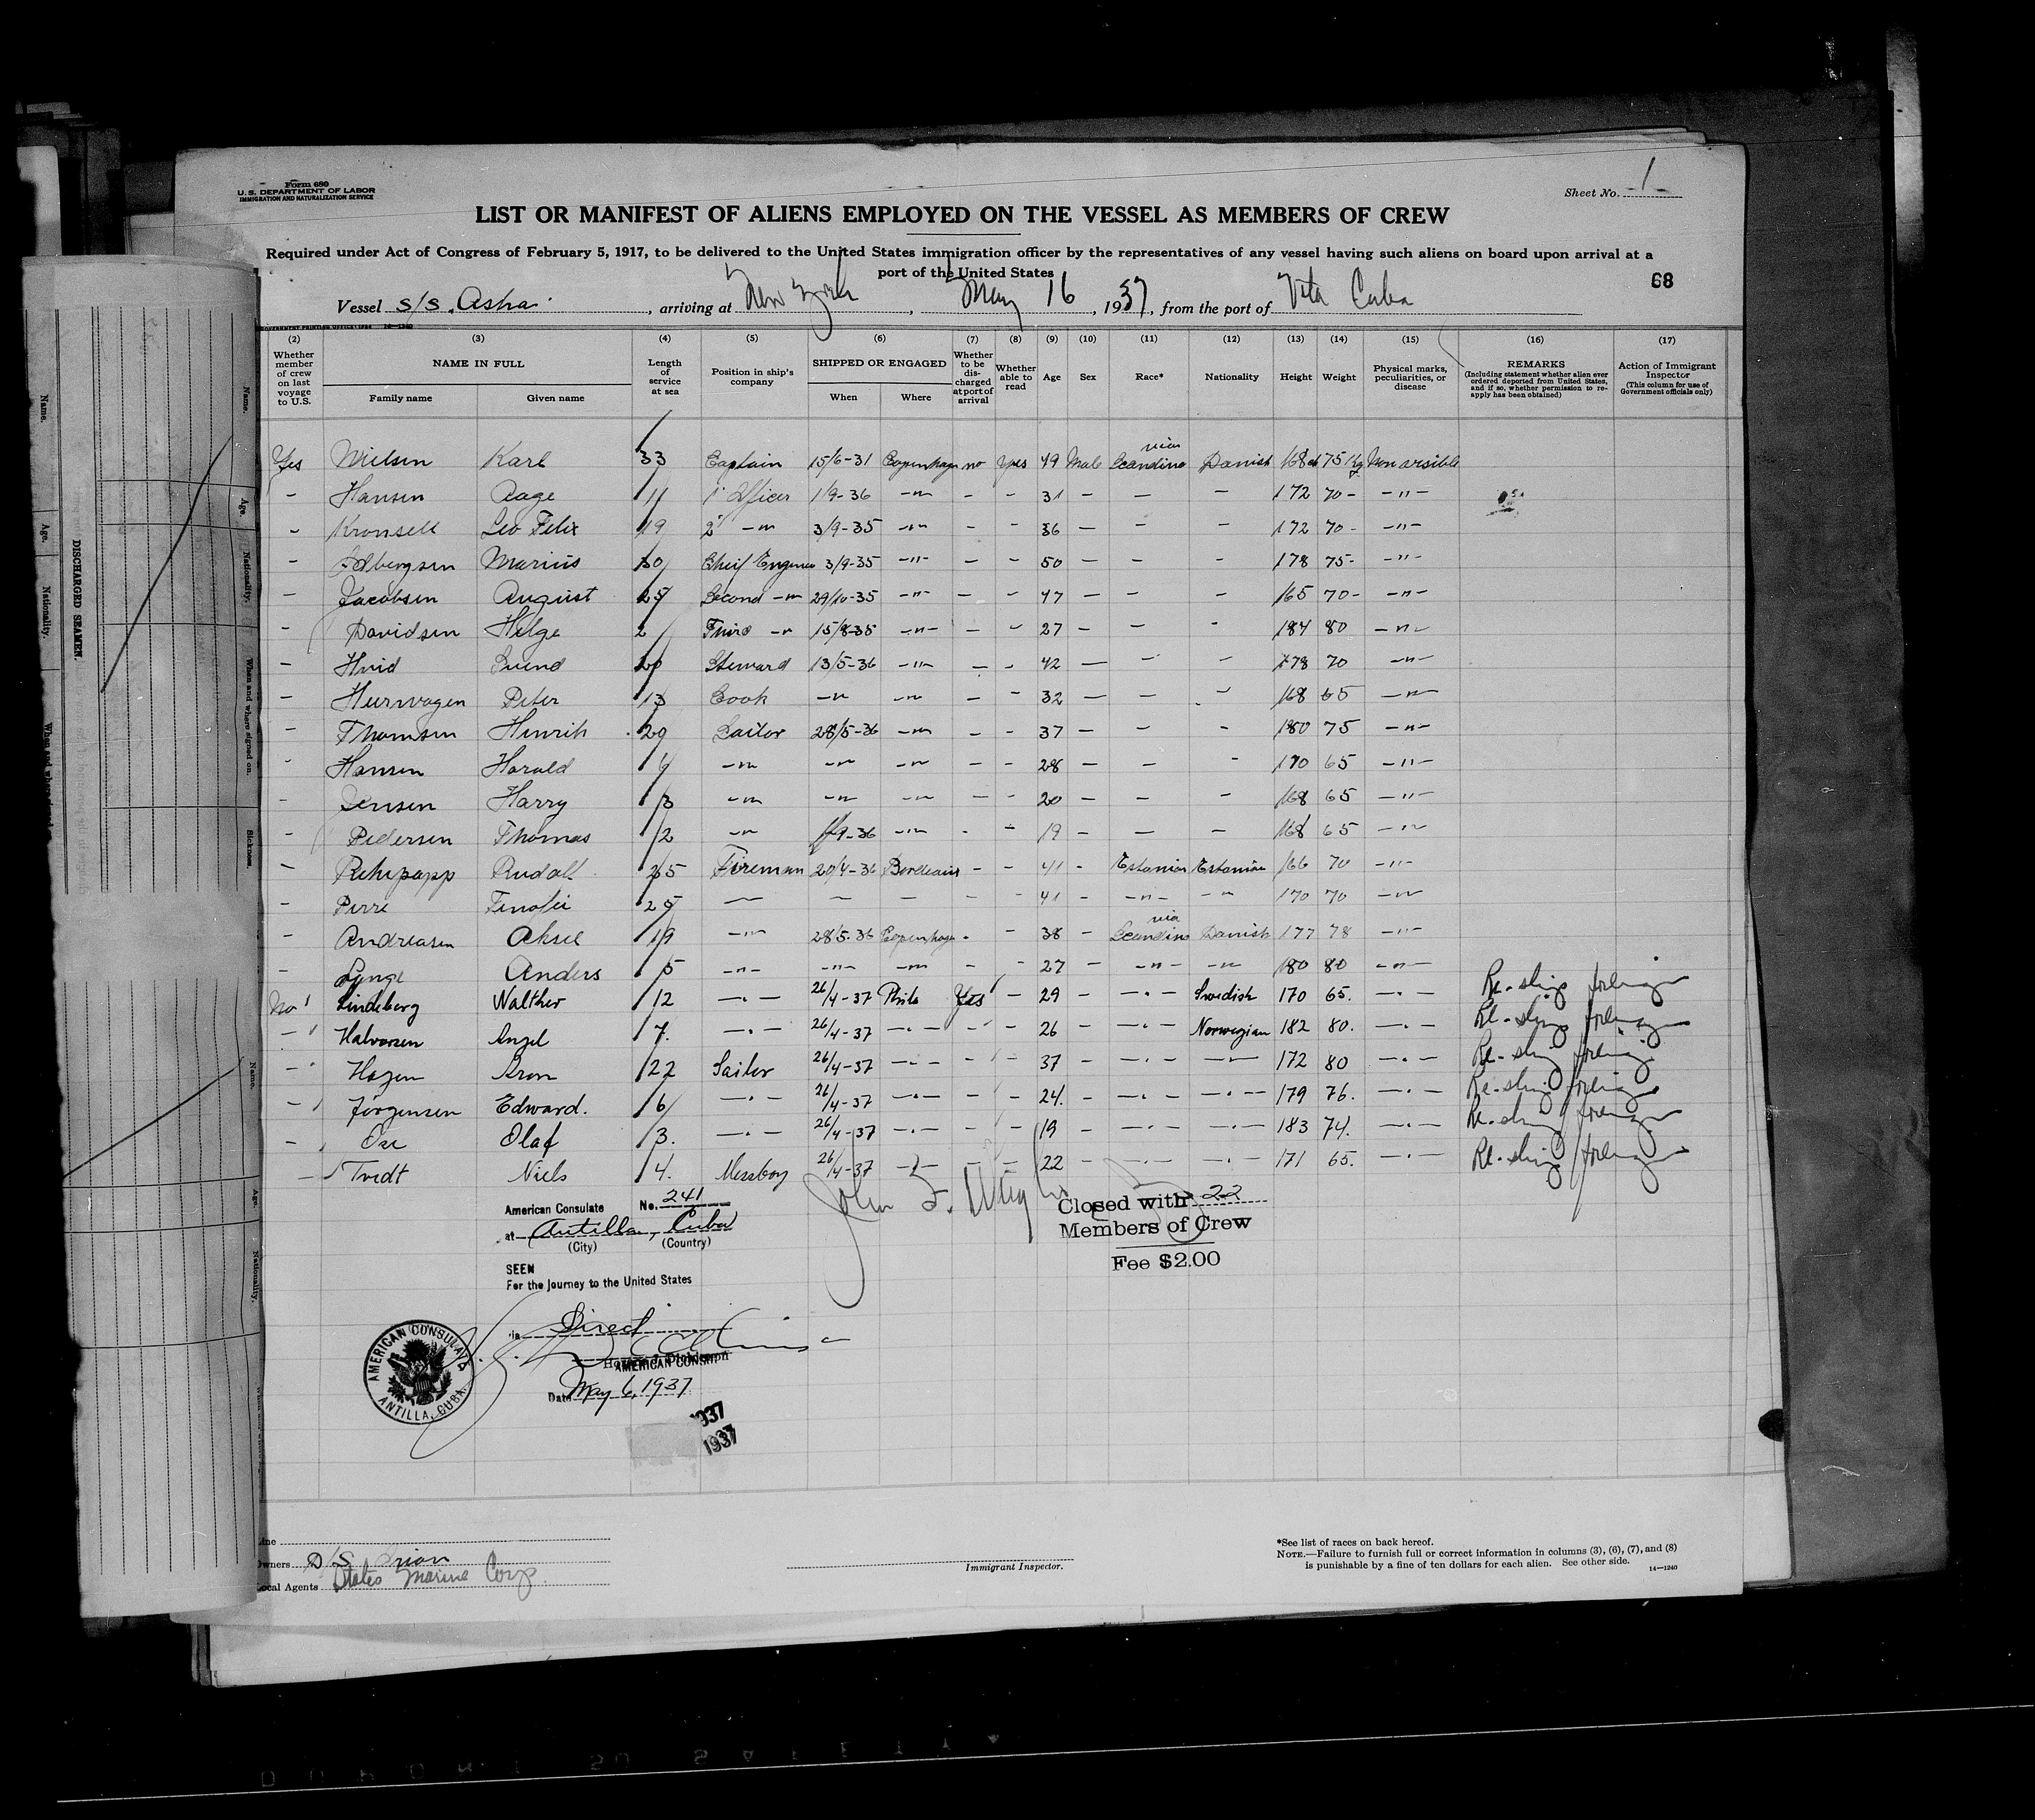 Form 680
U. S. DEPARTMENT OF LABOR
IMMIGRATION AND NATURALIZATION SERVICE
Sheet No. -1-
LIST OR MANIFEST OF ALIENS EMPLOYED ON THE VESSEL AS MEMBERS OF CREW
Required under Act of Congress of February 5, 1917, to be delivered to the United States immigration officer by the representatives of any vessel having such aliens on board upon arrival at a
port of the United States
68
Vessel s/s. Asha, arriving at New York, May 16, 1937, from the port of Vita Cuba
(2) (3) (4) (5) (6) (7) (8) (9) (10) (11) (12) (13) (14) (15) (16) (17)
Whether member of crew on last voyage to U.S.
NAME IN FULL
Family name Given name
Length of service at sea
Position in ship's company
SHIPPED OR ENGAGED
When Where
Whether to be discharged at port of arrival
Whether able to read
Age
Sex
Race*
Nationality
Height
Weight
Physical marks, peculiarities, or disease
REMARKS
(Including statement whether alien ever ordered deported from United States, and if so, whether permission to reapply has been obtained)
Action of Immigrant Inspector
(This column for use of Government officials only)
Yes Nielsen Karl 33 Captain 15/6-31 Copenhagen no yes 49 Male Scandinavian Danish 168 75 Kg Non visible
- Hansen Aage 11 1' Officer 1/9-36 -"- - - 31 - - - 172 70- -"-
- Kronsell Leo Felix 19 2' -"- 3/9-35 -"- - - 36 - - - 172 70- -"-
- Marius 30 Cheif Engineer 3/9-35 -"- - - 50 - - - 178 75- -"-
- Jacobsen August 25 Second -"- 29/10-35 -"- - - 47 - - - 165 70- -"-
- Davidsen Helge 2 Third -"- 15/8-35 -"- - - 27 - - - 184 80 -"-
- Hvid Svend 20 Steward 13/5-36 -"- - - 42 - - - 178 70 -"-
- Peter 13 Cook -"- -"- - - 32 - - - 168 65 -"-
- Thomsen Hinrik 20 Sailor 28/5-36 -"- - - 37 - - - 180 75 -"-
- Hansen Harald -"- -"- -"- - - 28 - - - 170 65 -"-
- Jensen Harry 3 -"- -"- -"- - - 20 - - - 168 65 -"-
- Pedersen Thomas 2 -"- 1/9-36 -"- - - 19 - - - 168 65 -"-
- Rehepapp Rudolf 25 Fireman 20/4-36 Bordeaux - - 41 - Estonian Estonian 166 70 -"-
- Pirre 25 - - - - - 41 - -"- -"- 170 70 -"-
- Andreasen Aksel 19 -"- 28/5-36 Copenhagen - - 38 - Scandinavian Danish 177 78 -"-
- Lynge Anders 5 -"- -"- -"- - - 27 - -"- -"- 180 80 -"-
No Lindeberg Walther 12 -"- 26/4-37 Phila Yes - 29 - -"- Swedish 170 65. -"- Re-ship foreign
- Halvorsen 7. -"- 26/4-37 -"- - - 26 - -"- Norwegian 182 80. -"- Re-ship foreign
- Hagen Aron 22 Sailor 26/4-37 -"- - - 37 - -"- -"- 172 80 -"- Re-ship foreign
- Jörgensen Edward. 6 -"- 26/4-37 -"- - - 24. - -"- -"- 179 76. -"- Re-ship foreign
- Olaf 3. -"- 26/4-37 -"- - - 19 - -"- -"- 183 74. -"- Re-ship foreign
- Tvedt Niels 4. Messboy 26/4-37 -"- - - 22 - -"- -"- 171 65. -"- Re-ship foreign
American Consulate No. 241
at Antilla, Cuba
(City) (Country)
John F.
Closed with 22
Members of Crew
Fee $2.00
SEEN
For the Journey to the United States
via Direct
AMERICAN CONSUL
Date May 6, 1937.
AMERICAN CONSULATE
ANTILLA, CUBA.
1937
1937
Line
Owners D/S Orion
Local Agents States Marine Corp.
Immigrant Inspector.
*See list of races on back hereof.
NOTE.—Failure to furnish full or correct information in columns (3), (6), (7), and (8)
is punishable by a fine of ten dollars for each alien. See other side.
14—1240
DISCHARGED SEAMEN.
Name.
Age.
Nationality.
When and where signed on.
Sickness.